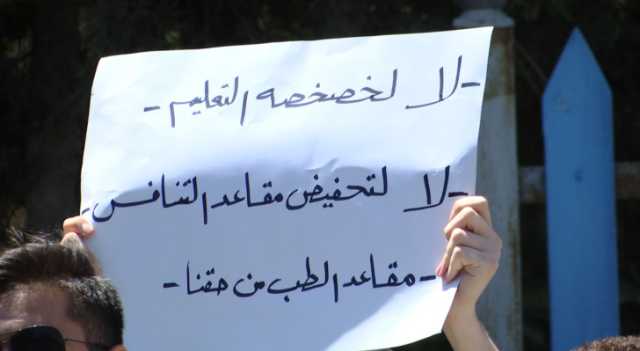 - لا لخصخصه التعليم -
- لا لتخفيض مقاعد التنافس -
- مقاعد الطب من حقنا -